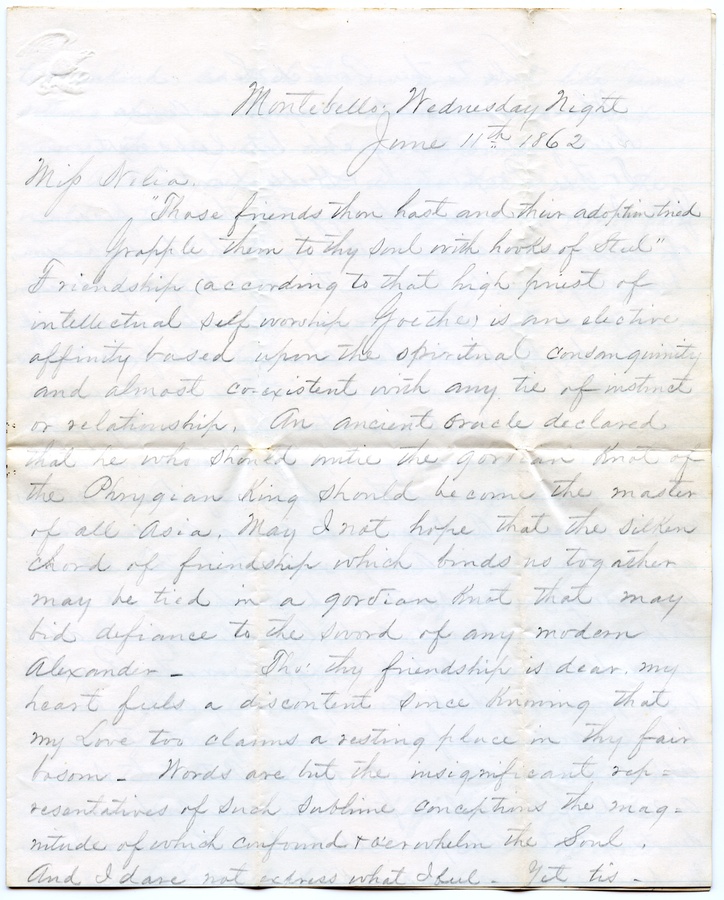 Montibello; Wednesday Night
June 11th 1862
Miss Nelia.
"Those friends thou hast and their adoption tried
Grapple them to thy soul with hooks of Steel"
Friendship (according to that high priest of
intellectual self worship Goethe) is an elective
affinity based upon the spiritual consanguinity
and almost co-existent with any tie of instinct
or relationship. An ancient oracle declared
that he who should untie the gordian Knot of
the Phrygian King should become the master
of all Asia. May I not hope that the silken
chord of friendship which binds us together
may be tied in a gordian Knot that may
bid defiance to the sword of any modern
Alexander - Tho' thy friendship is dear, my
heart feels a discontent since Knowing that
my Love too claims a resting place in thy fair
bosom - Words are but the insignificant rep=
resentatives of such sublime conceptions the mag=
nitude of which confound & o'erwhelm the Soul.
And I dare not express what I feel - Yet tis -